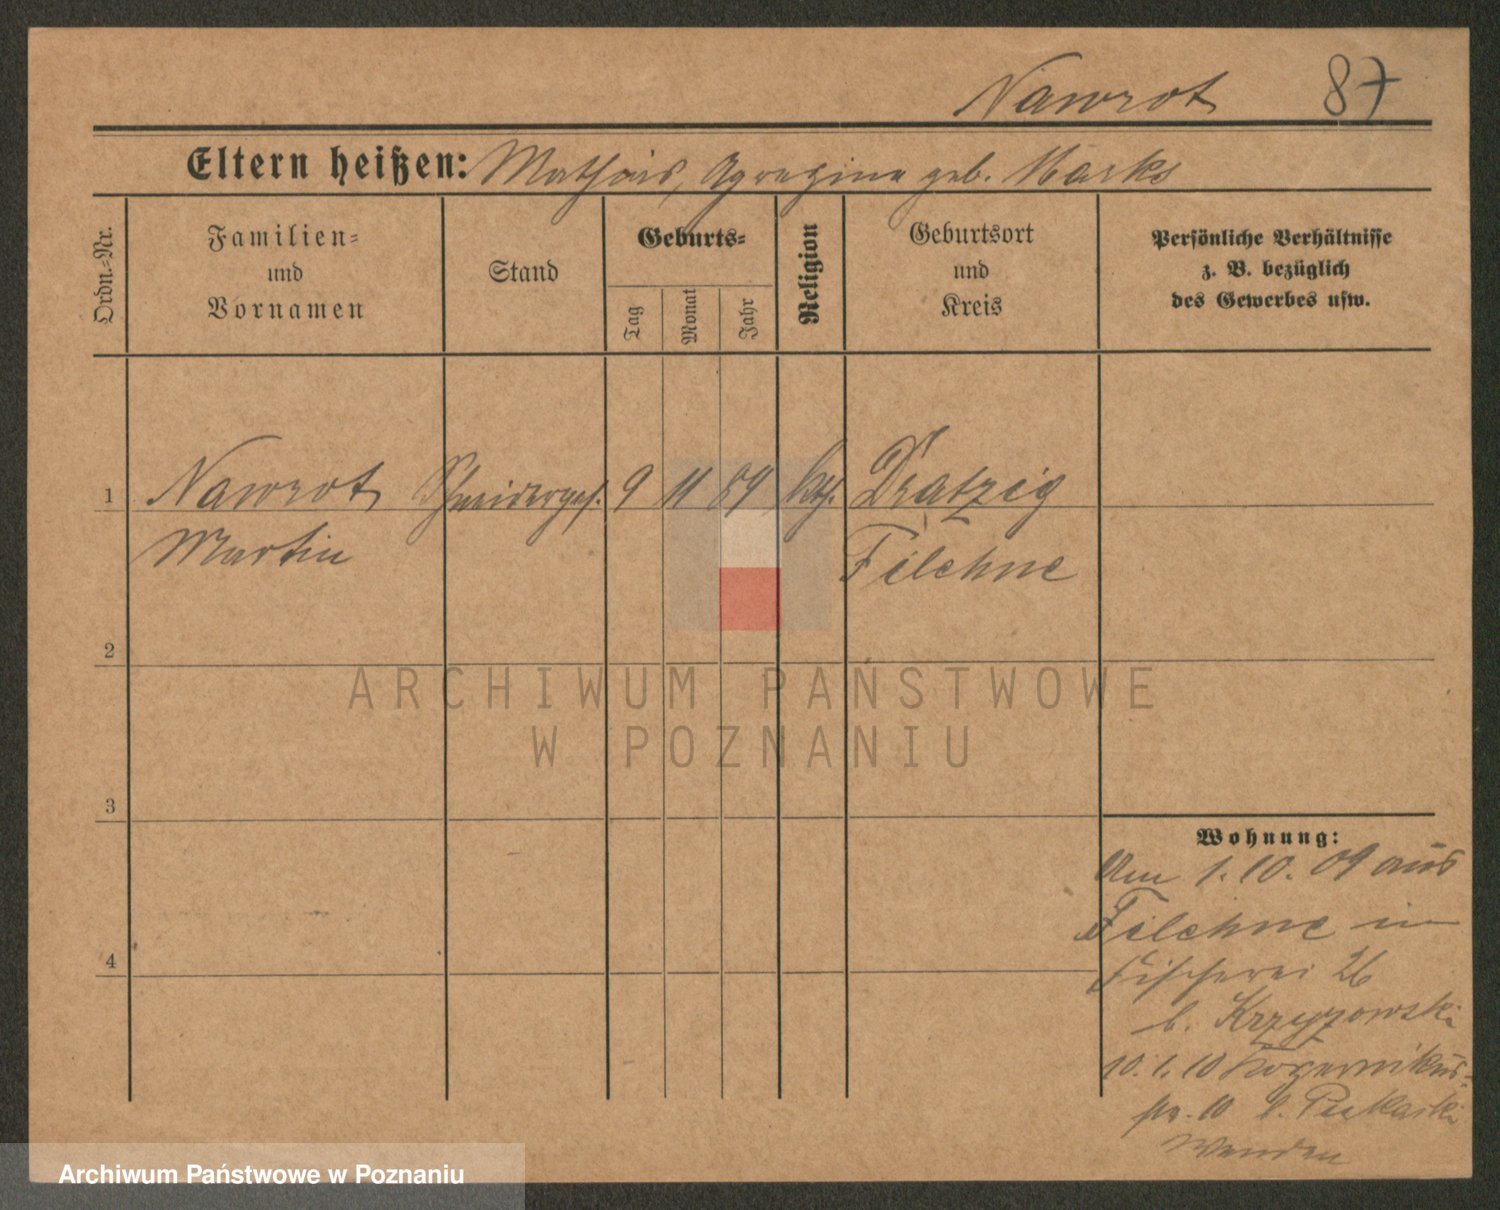 Nawrot 87
Eltern heißen: Mathäus, geb. Marks
Ordn.-Nr.
Familien-
und
Vornamen
Stand
Geburts-
Tag
Monat
Jahr
Religion
Geburtsort
und
Kreis
Persönliche Verhältnisse
z. B. bezüglich
des Gewerbes usw.
1 Nawrot Schneiderges. 9 11 89 kth. Dratzig
Martin Filehne
2
3
4
Wohnung:
Am 1.10.09 aus
Filehne in
Fischerei 26
b. Krzyzowski
10.1.10 Kopernikus-
str. 10 b.
Wenden
ARCHIWUM PAŃSTWOWE
W POZNANIU
Archiwum Państwowe w Poznaniu